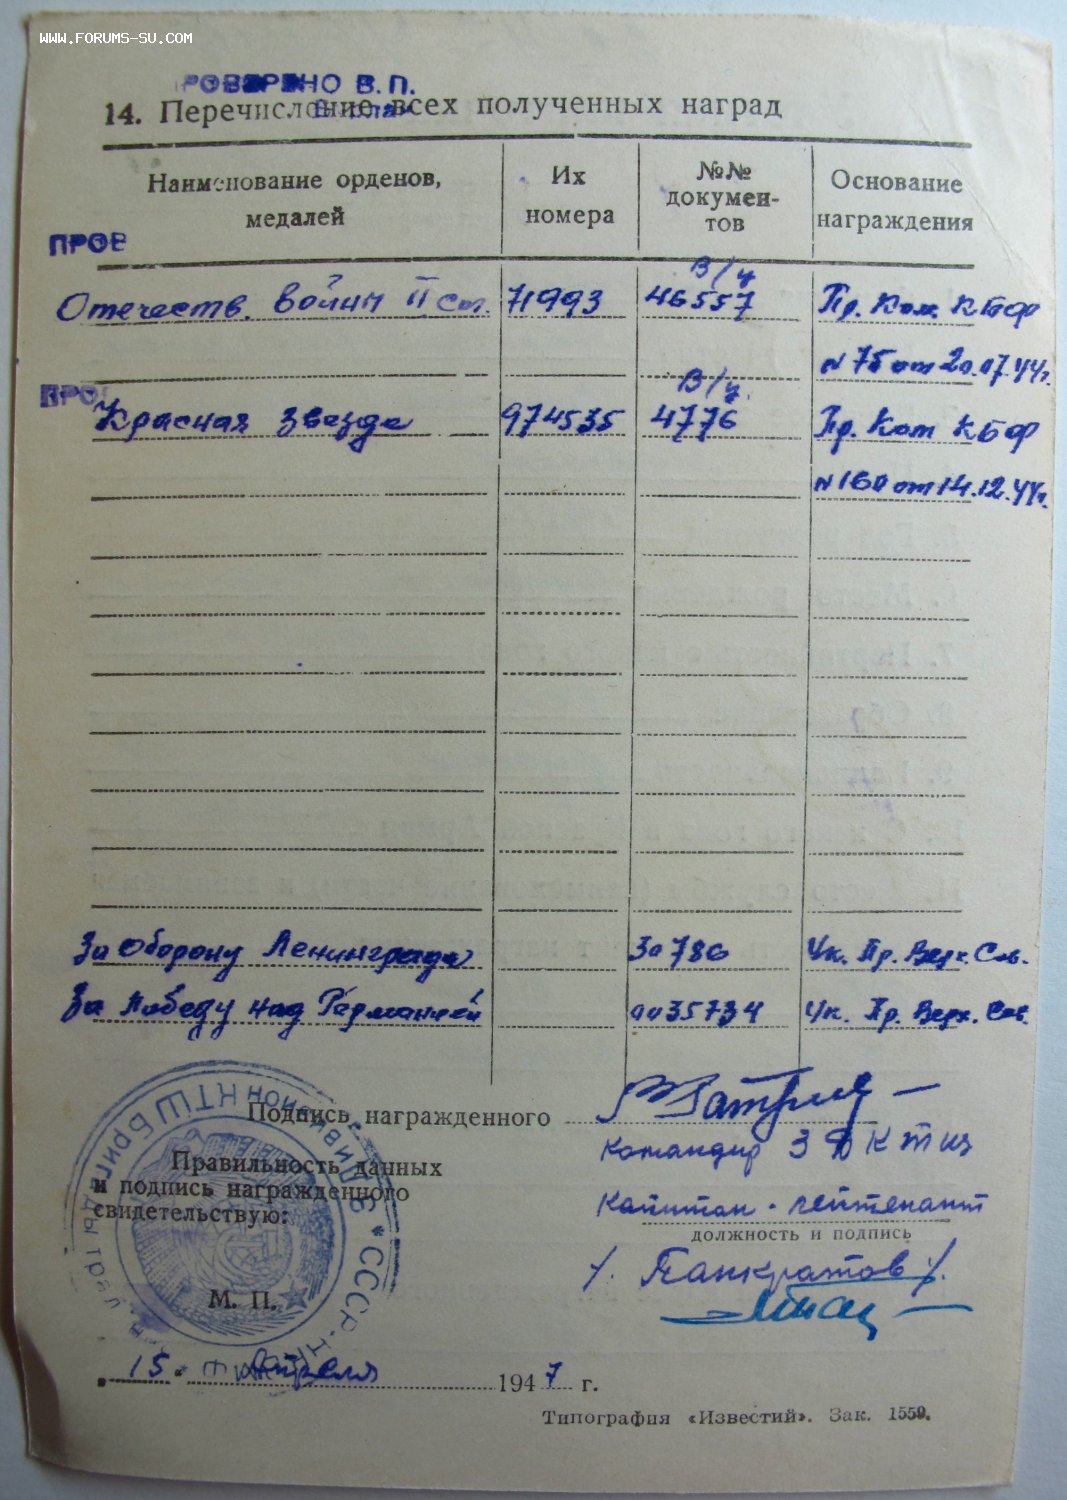 WWW.FORUMS-SU.COM
РОВЕРЕНО В. П.
14. Перечисление всех полученных наград
Наименование орденов, медалей
Их номера
№№ докумен-тов
Основание награждения
ПРОВ
В/ч
Отечеств. войны II ст. 71993 46557 Пр. Ком. КБФ
N 75 от 20.07.44г.
ПРО
В/ч
Красная звезда 974535 4776 Пр. Ком КБФ
N 160 от 14.12.44г.
За оборону Ленинграда 30786 Ук. Пр. Верх. Сов.
За победу над Германией 0035734 Ук. Пр. Верх. Сов.
Подпись награжденного
Командир 3 ДКТЩ
Правильность данных
и подпись награжденного
свидетельствую:
капитан-лейтенант
должность и подпись
/. Панкратов ./.
М. П.
ДИВИЗИОН КТЩ Бригады трал * СССР
„15" Апреля 1947 г.
Типография «Известий». Зак. 1559.